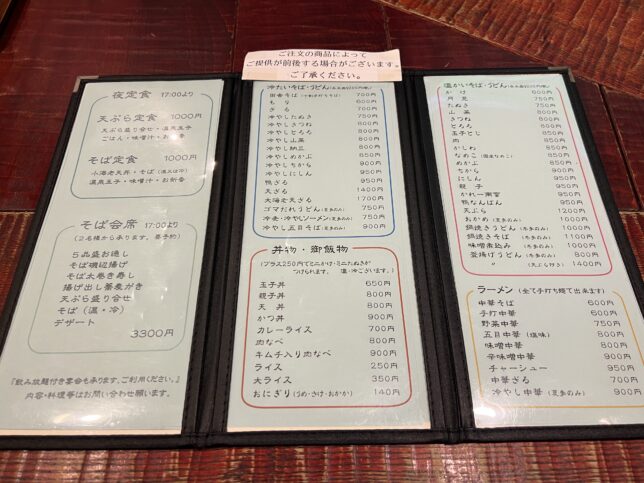 ご注文の商品によって
ご提供が前後する場合がございます。
ご了承ください。
夜定食 17:00より
天ぷら定食 1000円
天ぷら盛り合せ・温泉玉子
ごはん・味噌汁・お新香
そば定食 1000円
小海老天丼・そば(温又は冷)
温泉玉子・味噌汁・お新香
そば会席 17:00より
(2名様から承ります。要予約)
5品盛お通し
そば磯辺揚げ
そば太巻き寿し
揚げ出し蕎麦がき
天ぷら盛り合せ
そば(温・冷)
デザート
3300円
『飲み放題付き宴会も承ります。ご利用ください。』
内容・料理等はお問い合わせ願います。
冷たいそば・うどん
田舎そば 700円
もり
ざる
冷やしたぬき 750円
冷やしきつね 800円
冷やしとろろ 800円
冷やし山菜 800円
冷やし納豆 800円
冷やしめかぶ 850円
冷やしちから 900円
冷やしにしん 950円
鴨ざる 950円
天ざる 1400円
大海老天ざる 1700円
ゴマだれうどん(夏季のみ) 750円
冷麦・冷やしソーメン(夏季のみ) 750円
冷やし五目そば(夏季のみ) 900円
丼物・御飯物
(プラス250円でミニかけ・ミニたぬきが
つけられます。 温・冷ございます。)
玉子丼 650円
親子丼 800円
天丼 800円
かつ丼 900円
カレーライス 700円
肉なべ 800円
キムチ入り肉なべ 900円
ライス 250円
大ライス 350円
おにぎり(うめ・さけ・おかか) 140円
温かいそば・うどん
かけ 600円
月見
たぬき
山菜
きつね
とろろ
玉子とじ
肉
かしわ
なめこ
めかぶ
ちから
にしん
親子
カレー南蛮
鴨なんばん 950円
天ぷら 1200円
おかめ(冬季のみ)
鍋焼きうどん(冬季のみ) 1100円
鍋焼きそば(冬季のみ) 1100円
味噌煮込み(冬季のみ) 1100円
釜揚げうどん(冬季のみ) 800円
〃 (天ぷら付き) 1400円
ラーメン(全て手打ち麺で出来ます)
中華そば 600円
手打中華 600円
野菜中華 750円
五目中華(塩味) 800円
味噌中華 800円
辛味噌中華 900円
チャーシュー 950円
中華ざる 700円
冷やし中華(夏季のみ) 900円